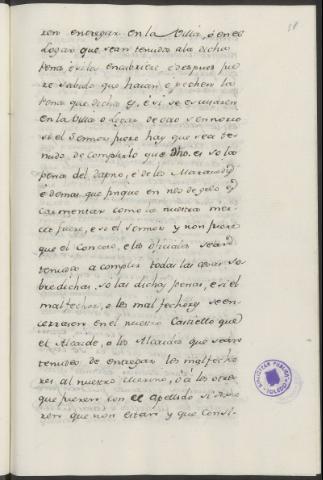 38
ren entregar en la Villa, o en el
Logar que sean tenudos a la dicha
pena, e si los encubrieren, e despues fue
re sabido que hayan e pechen la
pena que dicha es, e si se encerraren
en la Villa o Logar de otro Sennorio
si el Sennor fuere hay que sea te-
nudo de complirlo que dho. es so la
pena del dapno, e de los Maravedis
e demas que finque en nos de gelo
escarmentar como la nuestra mer-
cet fuere, e si el Sennor y non fuere
que el Concejo, e los oficiales sean
tenudos a complir todas las cosas so-
bredichas, so las dichas penas, e si el
malfechor, o los malfechores se en-
cerrasen en el nuestro Castiello que
el Alcaide, o los Alcaides que sean
tenudos de entregar los malfecho-
res al nuestro Merino, o a los otros
que fueren con el apellido si dixie
ren que non estan y que consi-
TOLEDO